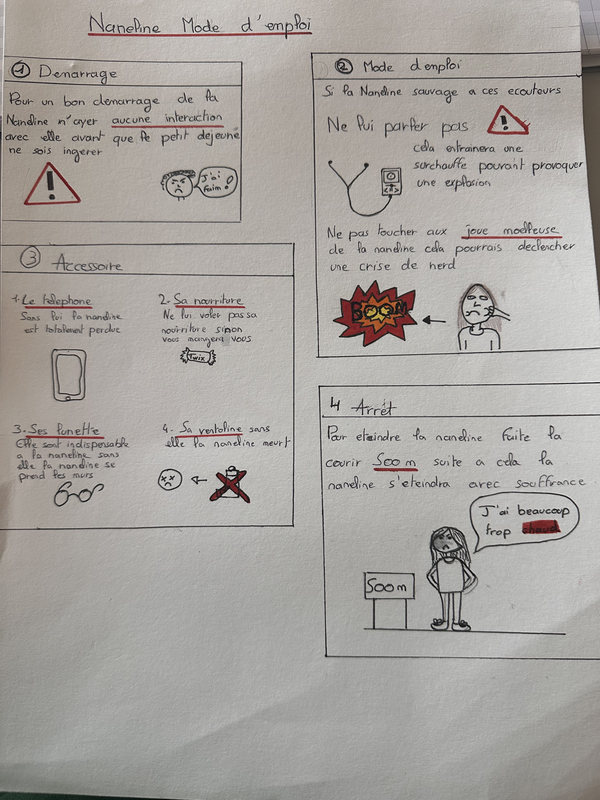 Naneline Mode d'emploi
① Demarrage
Pour un bon demarrage de la
Nandine n'ayer aucune interaction
avec elle avant que le petit dejeuné
ne sois ingerer
J'ai
faim !
② Mode d emploi
Si la Nandine sauvage a ces ecouteurs
Ne lui parler pas
cela entrainera une
surchauffe pouvant provoquer
une explosion
Ne pas toucher aux joue moelleuse
de la nandine cela pourrais declencher
une crise de nerd
BOOM
③ Accessoire
1. Le telephone
Sans lui la nandine
est totalement perdue
2. Sa nourriture
Ne lui voler pas sa
nourriture sinon
vous mangera vous
Twix
3. Ses lunette
Elle sont indispensable
a la nandine sans
elle la nandine se
prend les murs
4. Sa ventoline sans
elle la nandine meurt
4 Arrêt
Pour eteindre la nandine faite la
courir 500 m suite a cela la
nandine s'eteindra avec souffrance
J'ai beaucoup
trop chaud
500 m